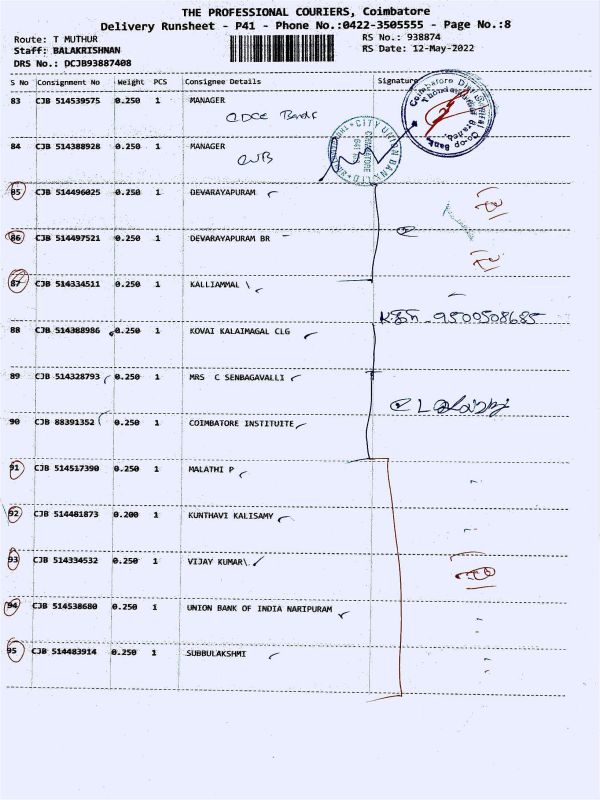 THE PROFESSIONAL COURIERS, Coimbatore
Delivery Runsheet - P41 - Phone No.:0422-3505555 - Page No.:8
Route: T MUTHUR RS No.: 938874
Staff: BALAKRISHNAN RS Date: 12-May-2022
DRS No.: DCJB93887408
S No Consignment No Weight PCS Consignee Details Signature
83 CJB 514539575 0.250 1 MANAGER
Coimbatore District Central Co-op Bank.
Thondamuthur Branch.
84 CJB 514388928 0.250 1 MANAGER
CUB
CITY UNION BANK LTD
COIMBATORE
641
85 CJB 514496025 0.250 1 DEVARAYAPURAM
86 CJB 514497521 0.250 1 DEVARAYAPURAM BR
87 CJB 514334511 0.250 1 KALLIAMMAL \
9500508685
88 CJB 514388986 0.250 1 KOVAI KALAIMAGAL CLG
89 CJB 514328793 0.250 1 MRS C SENBAGAVALLI
90 CJB 88391352 0.250 1 COIMBATORE INSTITUITE
91 CJB 514517390 0.250 1 MALATHI P
92 CJB 514481873 0.200 1 KUNTHAVI KALISAMY
93 CJB 514334532 0.250 1 VIJAY KUMAR\
94 CJB 514538680 0.250 1 UNION BANK OF INDIA NARIPURAM
95 CJB 514483914 0.250 1 SUBBULAKSHMI